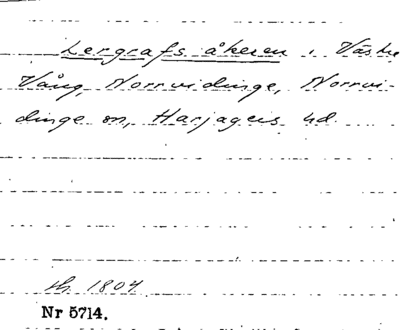 Lergrafs åkeren i Västra
Vång, Norrvidinge, Norrvi-
dinge sn, Harjagers hd.
1804
Nr 5714.